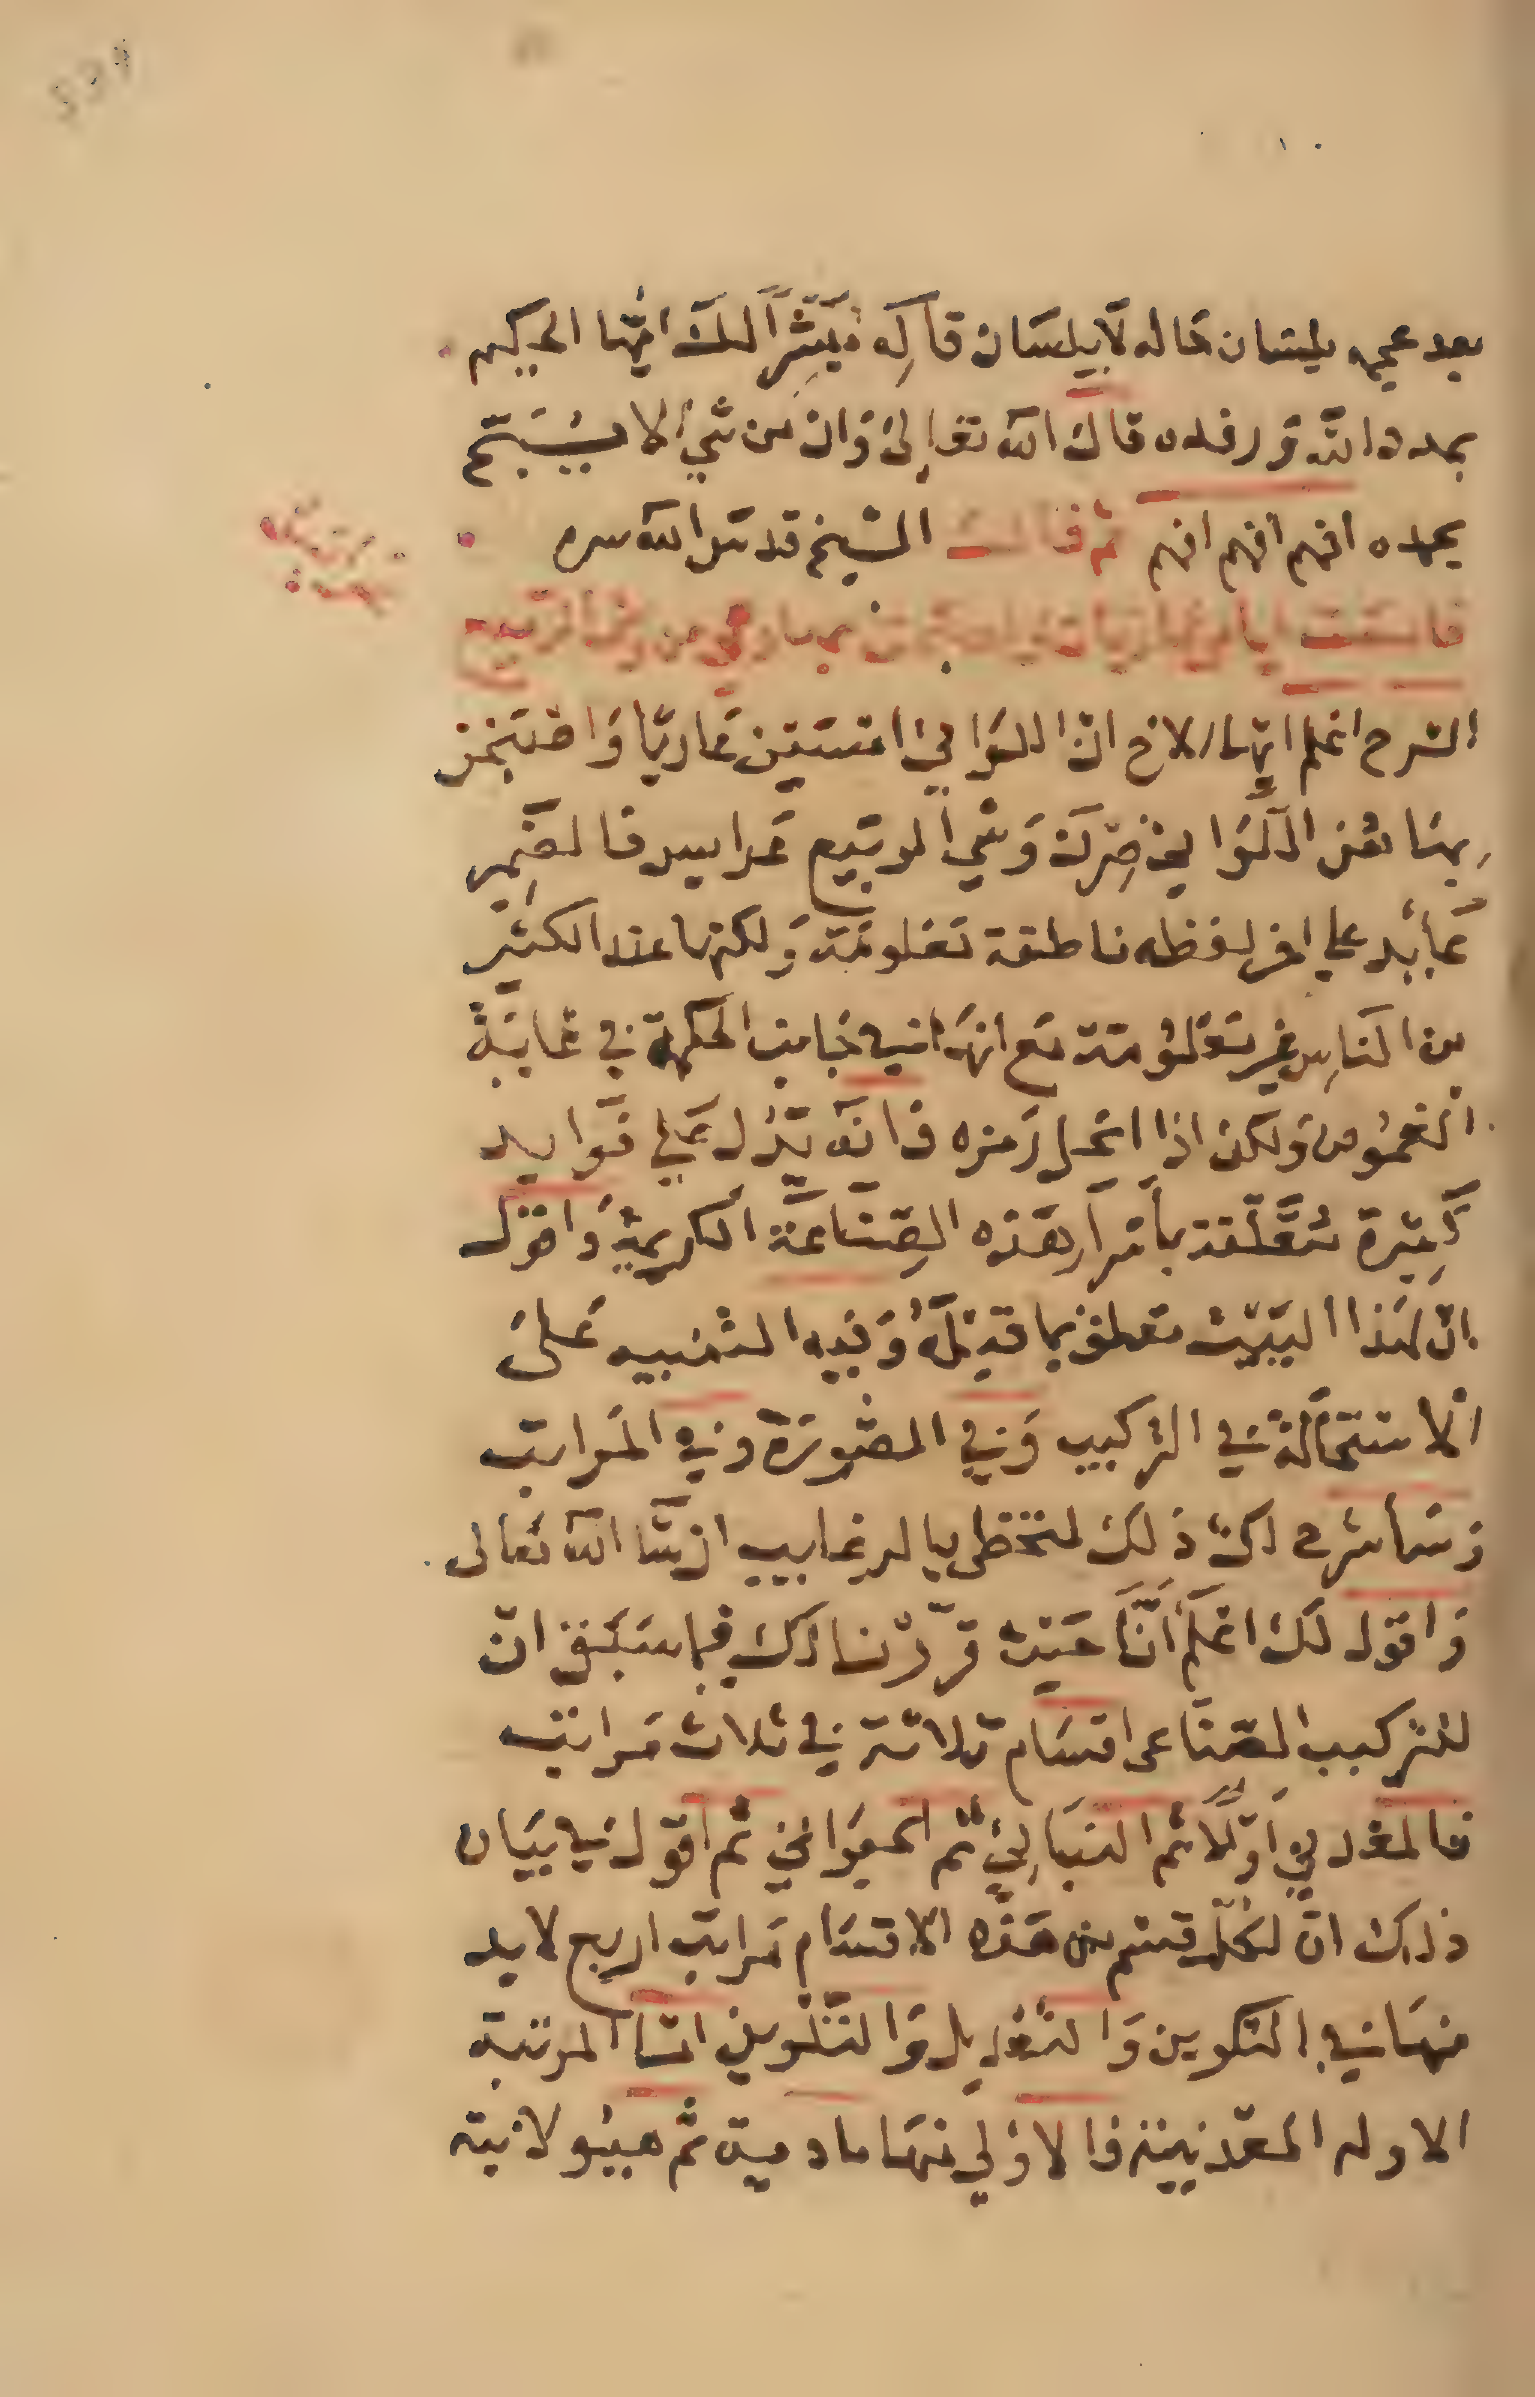 بعد عجمه بلسان حاله لا بلسان قاله فيشير اليك ايها الحكيم
بمدد الله ورفده قال الله تعالى وان من شيء الا يسبح
بحمده افهم افهم افهم ثم قال الشيخ قدس الله سره
الشرح اعلم ايها الاخ ان اللوا في امسين عاريا واصبحن
بها من اللوا في صرن وشي الربيع عرايس فالضمير
عايد على اخر لفظه ناطقة معلومة ولكنها عند الكثير
من الناس غير معلومة مع انها فيه جانب الحكمة في غاية
الغموض ولكن اذا انحل رمزه فانه يدل على فوايد
كثيرة متعلقة باسرار هذه الصناعة الكريمة واقول
ان هذا البيت متعلق بما قبله وفيه التنبيه على
الاستحالة في التركيب وفي الصورة وفي المراتب
وساشرح لك ذلك لتحظى بالرغايب ان شا الله تعالى
واقول لك اعلم اننا حيث قررنا لك فيما سبق ان
للتركيب الصناعى اقسام ثلاثة في ثلاث مراتب
فالمعدني اولا ثم النباتي ثم الحيواني ثم اقول في بيان
ذلك ان لكل قسم من هذه الاقسام مراتب اربع لابد
منها في التكوين والتعديل والتلوين اما المرتبة
الاوله المعدنية فالاولي منها مادية ثم هيولانية